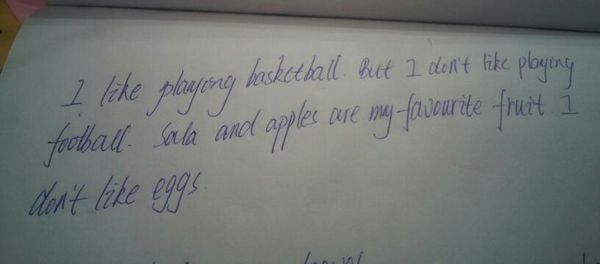 I like playing basketball. But I don't like playing
football. Sala and apples are my favourite fruit I
don't like eggs.